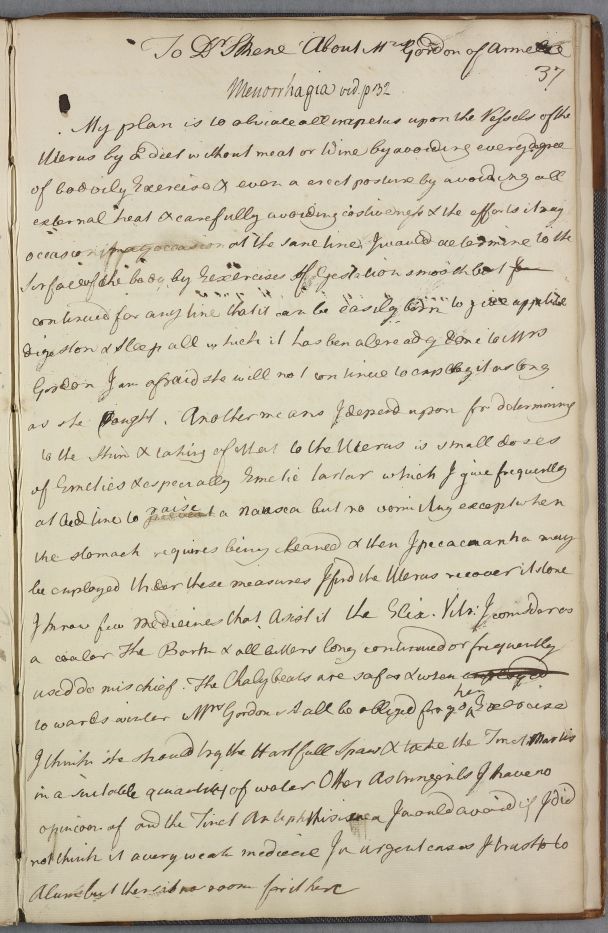 To Dr Skene About Mrs Gordon of
37
Menorrhagia vid. p 32
My plan is to obviate all impetus upon the Vessels of the
Uterus by a diet without meat or Wine by avoiding every degree
of bodily Exercise & even a erect posture by avoiding all
external heat & carefully avoiding costiveness & the efforts it may
occasion at the same time I would determine to the
Surface of the body by Exercises of Gestation smooth but
continued for any time that it can be easily born to give appetite
digestion & sleep all which it has been already done to Mrs
Gordon I am afraid she will not continue to employ it as long
as she ought. Another means I depend upon for determining
to the skin & taking of that to the Uterus is small doses
of Emetics & especially Emetic tartar which I give frequently
at bed time to raise a nausea but no vomiting except when
the stomach requires being cleaned & then Ipecacuanha may
be employed Under these measures I find the Uterus recover its tone
I know few medicines that assist it the Elix. Vitr: I consider as
a cooler The Bark & all bitters long continued or frequently
used do mischief. The Chalybeats are safer & when
towards winter Mrs Gordon shall be obliged forgo her Exercise
I think she should try the Hartfull Spaw & take the Tinct Martis
in a suitable quantity of water Other Astringents I have no
opinion of and the Tinct Antiphthisica I would avoid if I did
not think it a very weak medicine In urgent cases I trust to
Alum but there is no room for it here